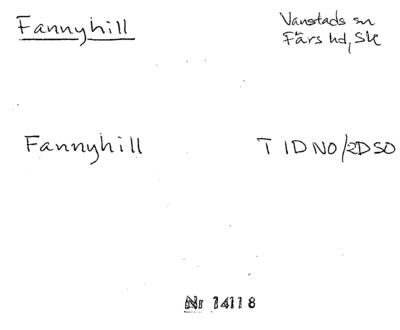 Fannyhill
Vanstads sn
Färs hd, Sk
Fannyhill
T 1D NO/2D SO
Nr 14118